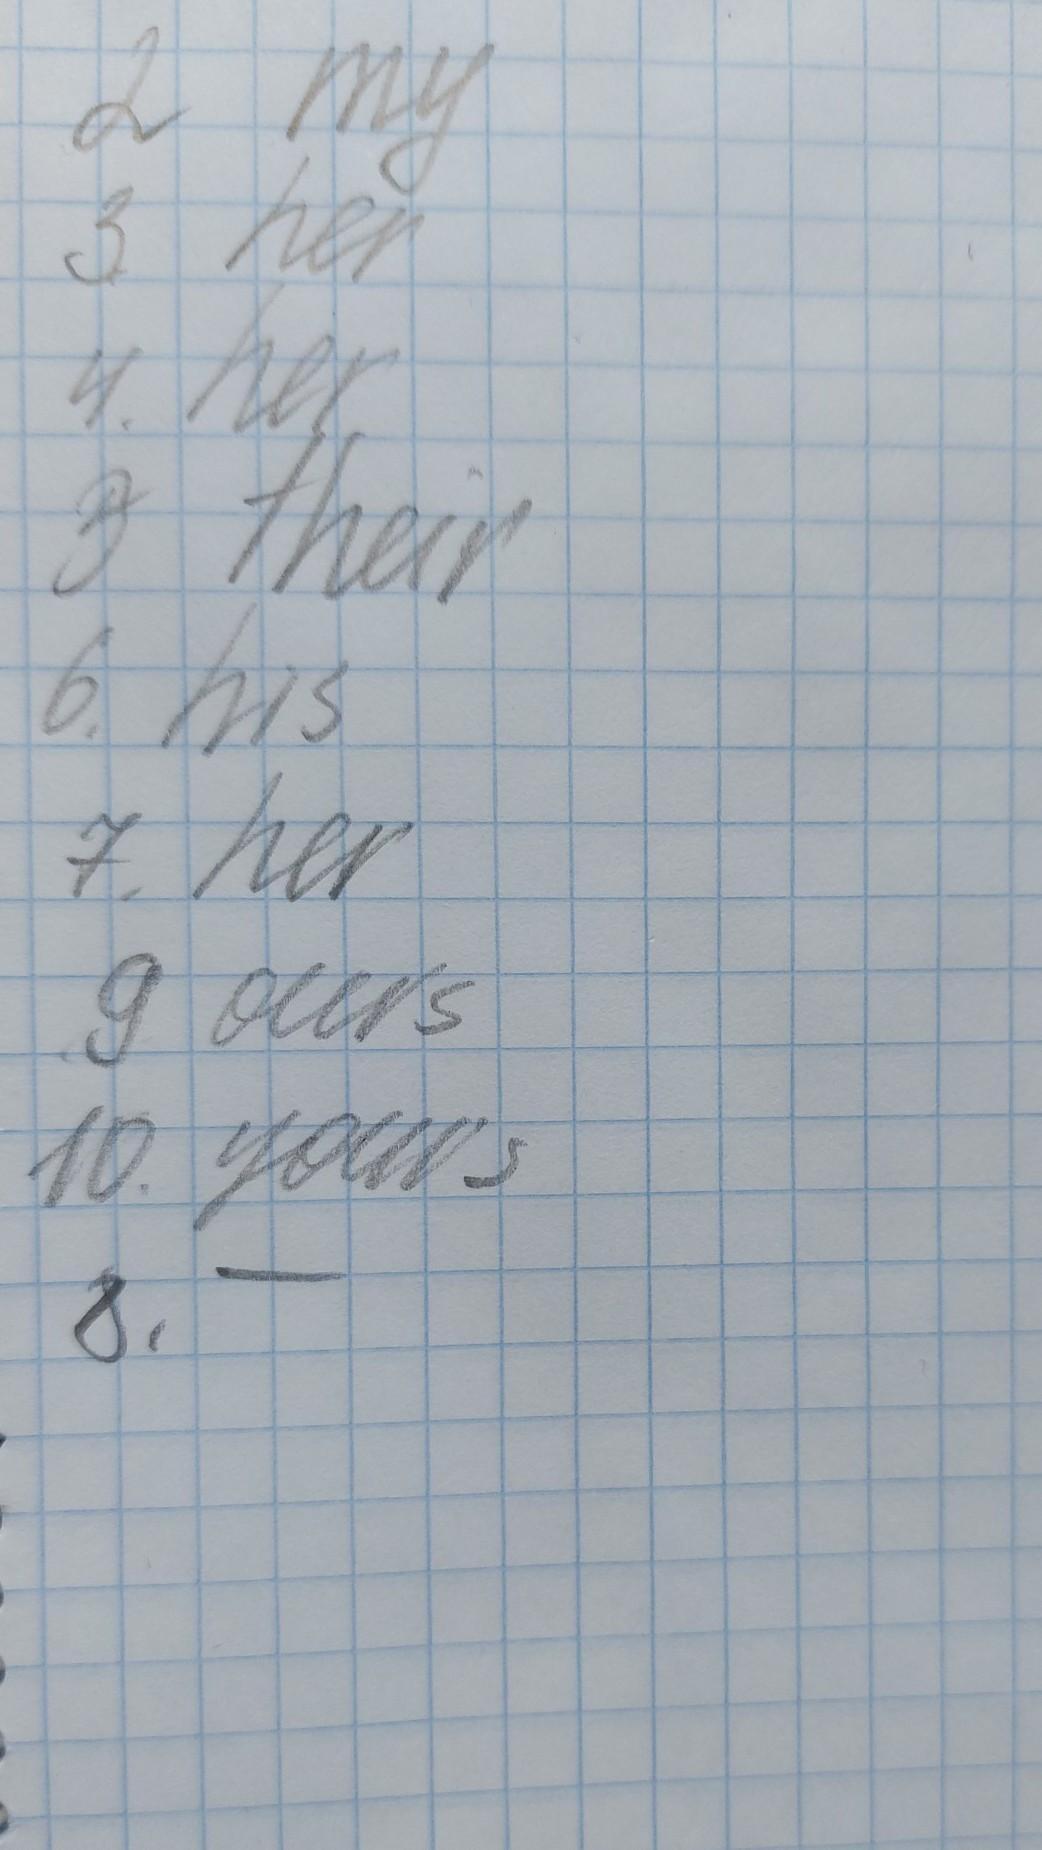 2 my
3 her
4. her
5 their
6. his
7. her
9 ours
10. yours
8. —